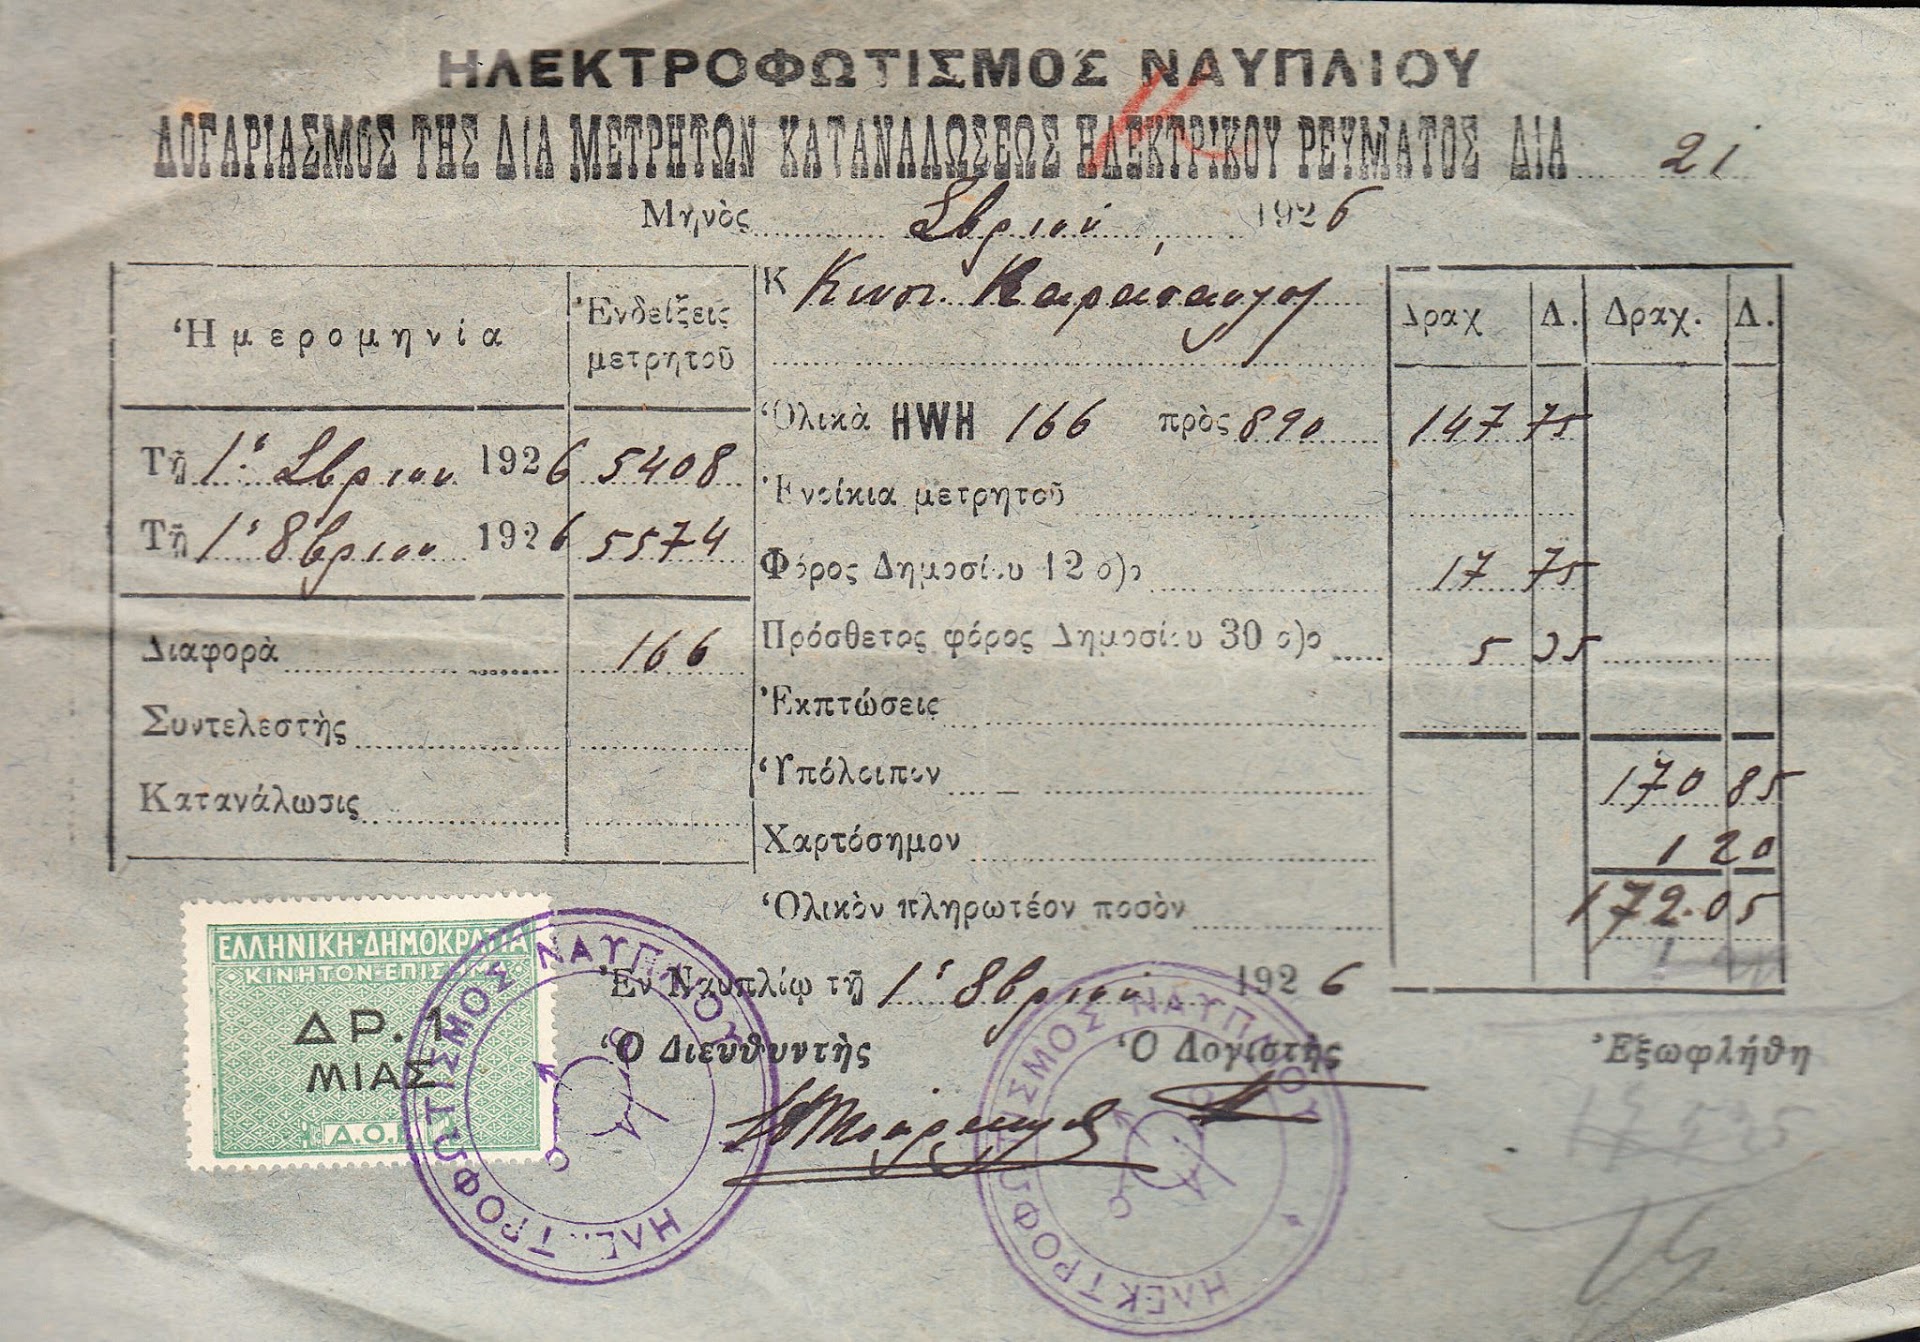 ΗΛΕΚΤΡΟΦΩΤΙΣΜΟΣ ΝΑΥΠΛΙΟΥ
ΛΟΓΑΡΙΑΣΜΟΣ ΤΗΣ ΔΙΑ ΜΕΤΡΗΤΩΝ ΚΑΤΑΝΑΛΩΣΕΩΣ ΗΛΕΚΤΡΙΚΟΥ ΡΕΥΜΑΤΟΣ ΔΙΑ 21
Μηνὸς Σβρίου 1926
Ἡμερομηνία Ἐνδείξεις μετρητοῦ
Τῇ 1ῃ Σβρίου 1926 5408
Τῇ 1ῃ 8βρίου 1926 5574
Διαφορὰ 166
Συντελεστὴς
Κατανάλωσις
Κ
Δραχ Δ. Δραχ. Δ.
Ὁλικὰ HWH 166 πρὸς 890 147 75
Ἐνοίκια μετρητοῦ
Φόρος Δημοσίου 12 ο)ο 17 75
Πρόσθετος φόρος Δημοσίου 30 ο)ο 5 35
Ἐκπτώσεις
Ὑπόλοιπον 170 85
Χαρτόσημον 1 20
Ὁλικὸν πληρωτέον ποσὸν 172.05
Ἐν Ναυπλίῳ τῇ 1ῃ 8βρίου 1926
Ὁ Διευθυντὴς Ὁ Λογιστὴς Ἐξωφλήθη
ΕΛΛΗΝΙΚΗ·ΔΗΜΟΚΡΑΤΙΑ
ΚΙΝΗΤΟΝ·ΕΠΙΣΗΜΑ
ΔΡ. 1
ΜΙΑΣ
ΗΛΕΚΤΡΟΦΩΤΙΣΜΟΣ ΝΑΥΠΛΙΟΥ
ΗΛΕΚΤΡΟΦΩΤΙΣΜΟΣ ΝΑΥΠΛΙΟΥ